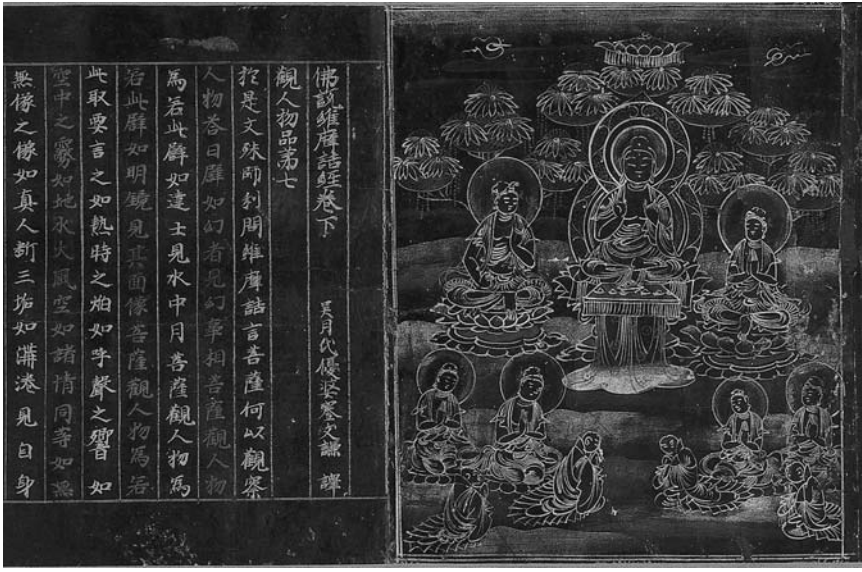 佛說維摩詰經卷下
吳月氏優婆塞支謙譯
觀人物品第七
於是文殊師利問維摩詰言菩薩何以觀察
人物荅曰譬如幻者見幻事相菩薩觀人物
為若此譬如達士見水中月菩薩觀人物為
若此譬如明鏡見其面像菩薩觀人物為若
此取要言之如熱時之焰如呼聲之響如
空中之霧如地水火風空如諸情同等如無
無像之像如真人斷三垢如溝港見自身